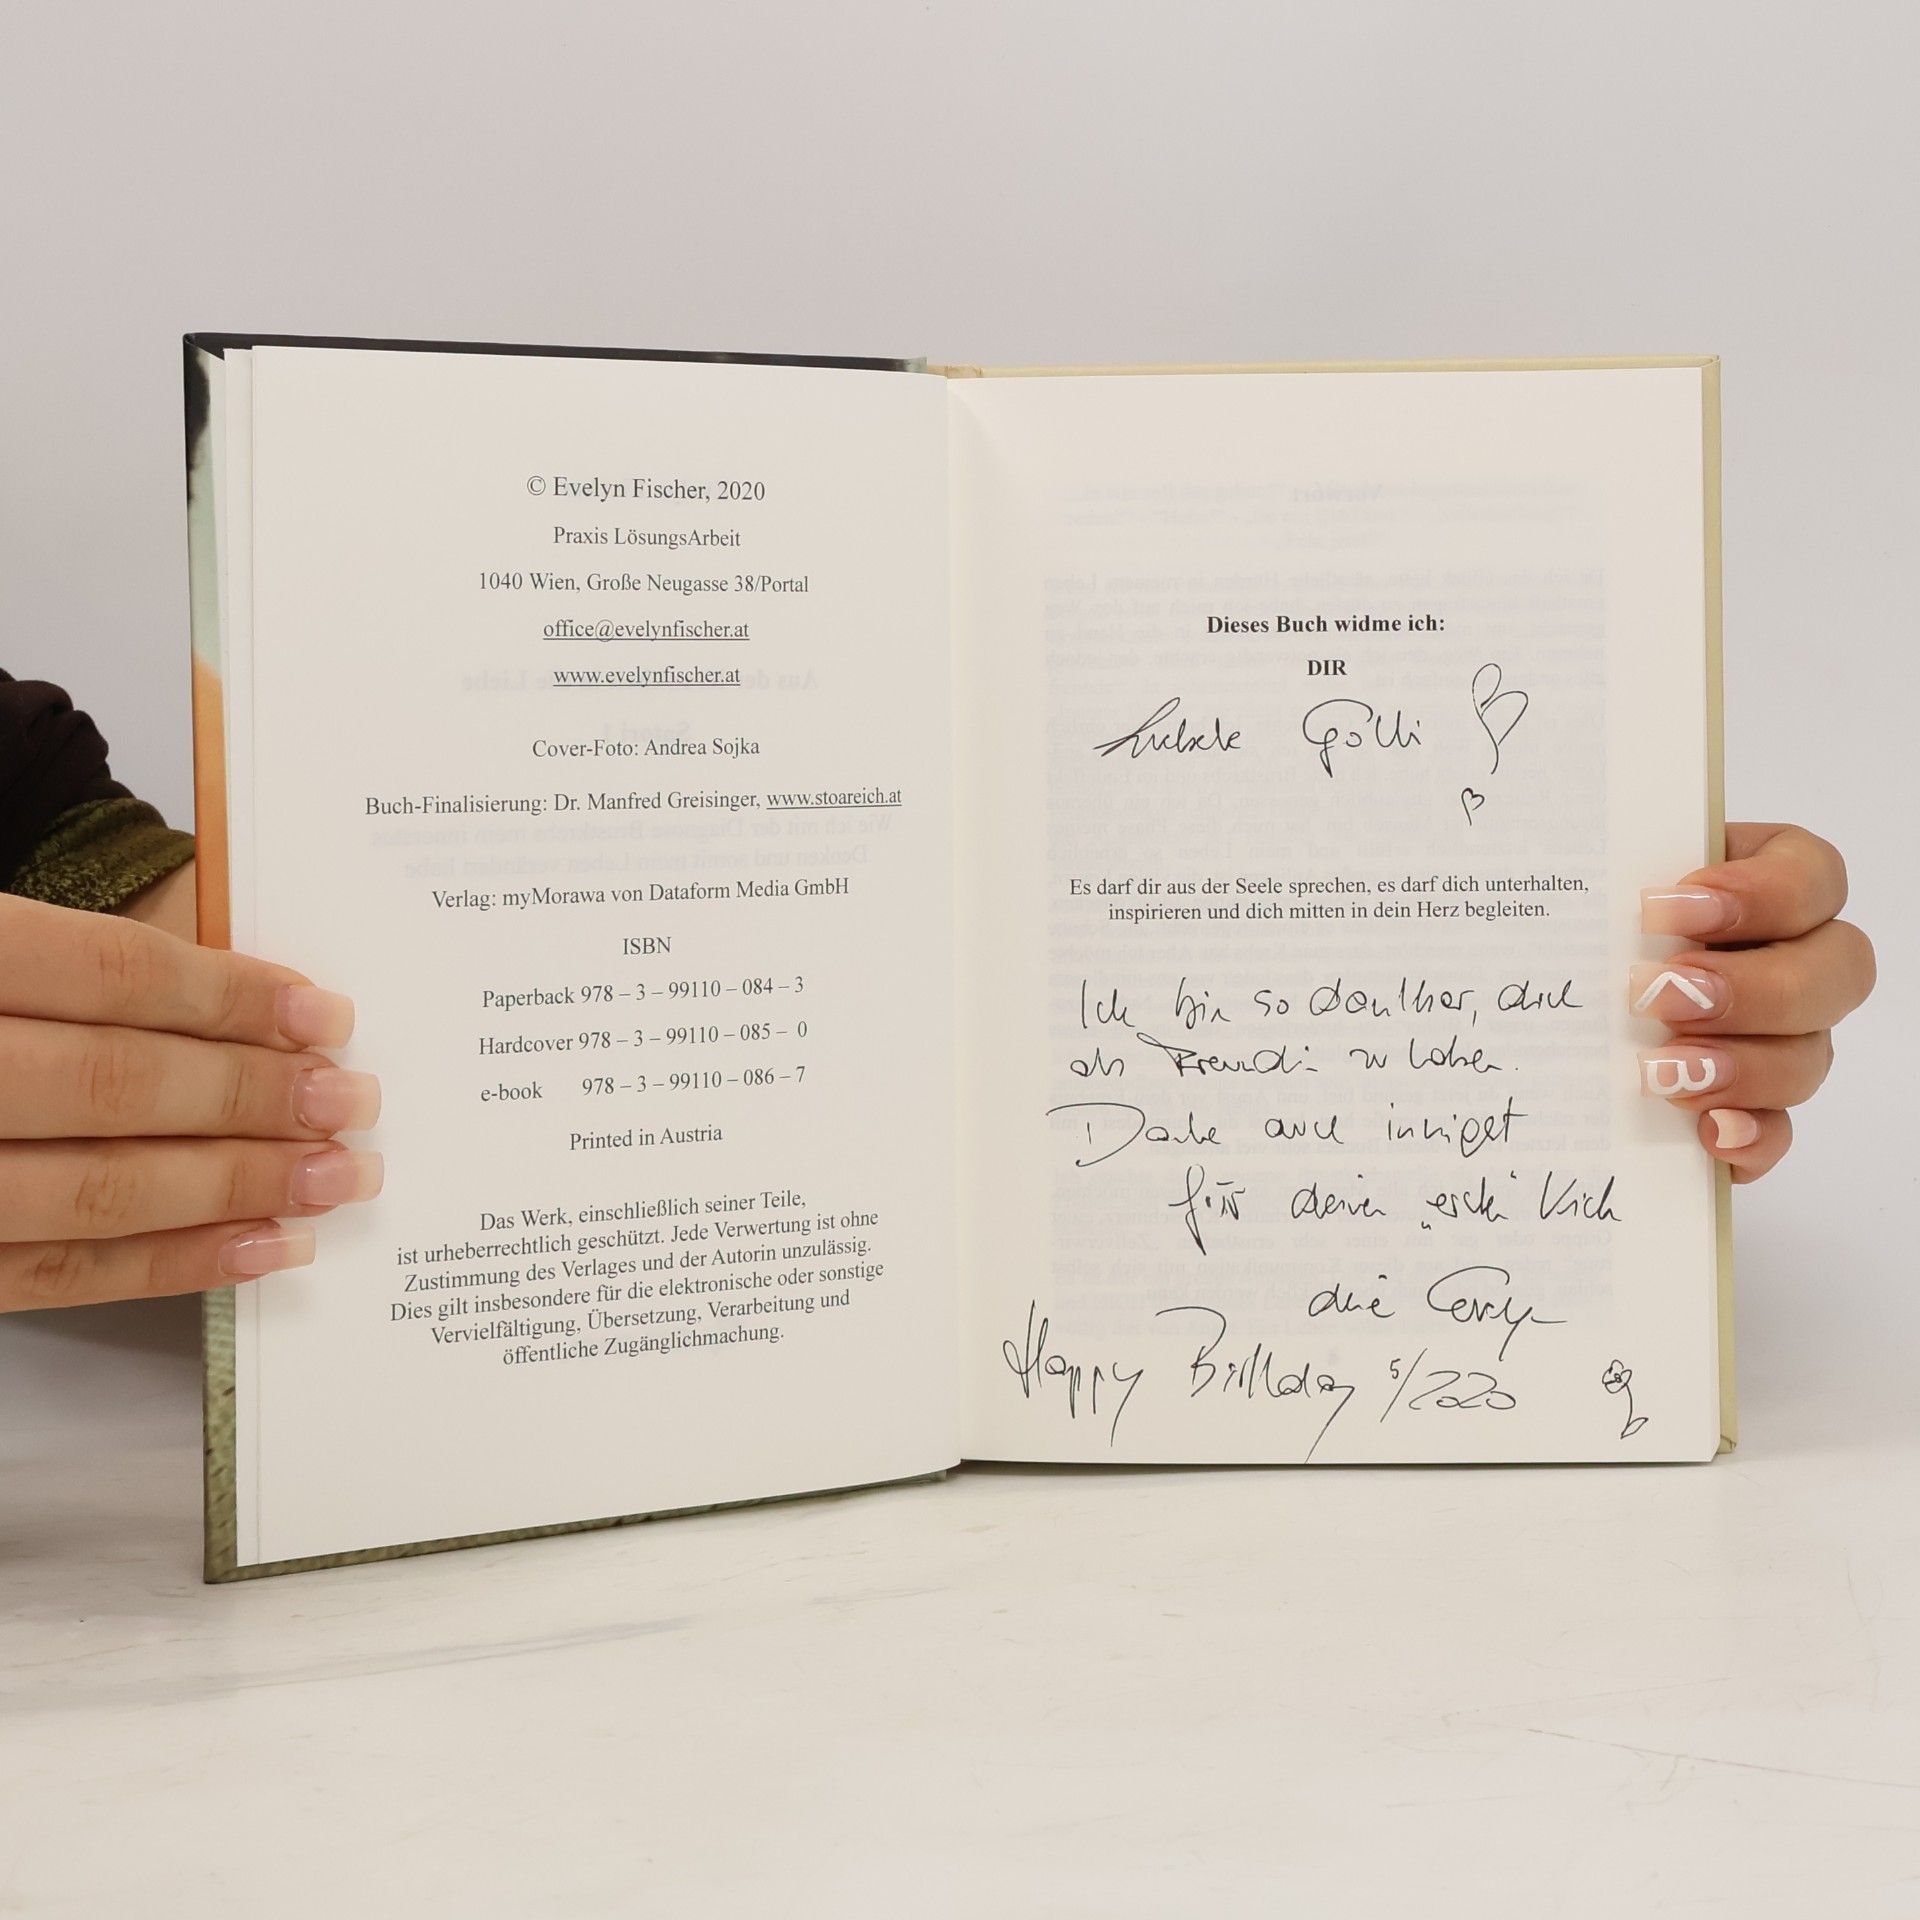 © Evelyn Fischer, 2020
Praxis LösungsArbeit
1040 Wien, Große Neugasse 38/Portal
office@evelynfischer.at
www.evelynfischer.at
Cover-Foto: Andrea Sojka
Buch-Finalisierung: Dr. Manfred Greisinger, www.stoareich.at
Verlag: myMorawa von Dataform Media GmbH
ISBN
Paperback 978 – 3 – 99110 – 084 – 3
Hardcover 978 – 3 – 99110 – 085 – 0
e-book 978 – 3 – 99110 – 086 – 7
Printed in Austria
Das Werk, einschließlich seiner Teile,
ist urheberrechtlich geschützt. Jede Verwertung ist ohne
Zustimmung des Verlages und der Autorin unzulässig.
Dies gilt insbesondere für die elektronische oder sonstige
Vervielfältigung, Übersetzung, Verarbeitung und
öffentliche Zugänglichmachung.
Dieses Buch widme ich:
DIR
Liebste Gölli
Es darf dir aus der Seele sprechen, es darf dich unterhalten,
inspirieren und dich mitten in dein Herz begleiten.
Ich bin so dankbar, dich
als Freundin zu haben.
Danke auch innigst
für deinen „ersten"
deine Evelyn
Happy Birthday 5/2020